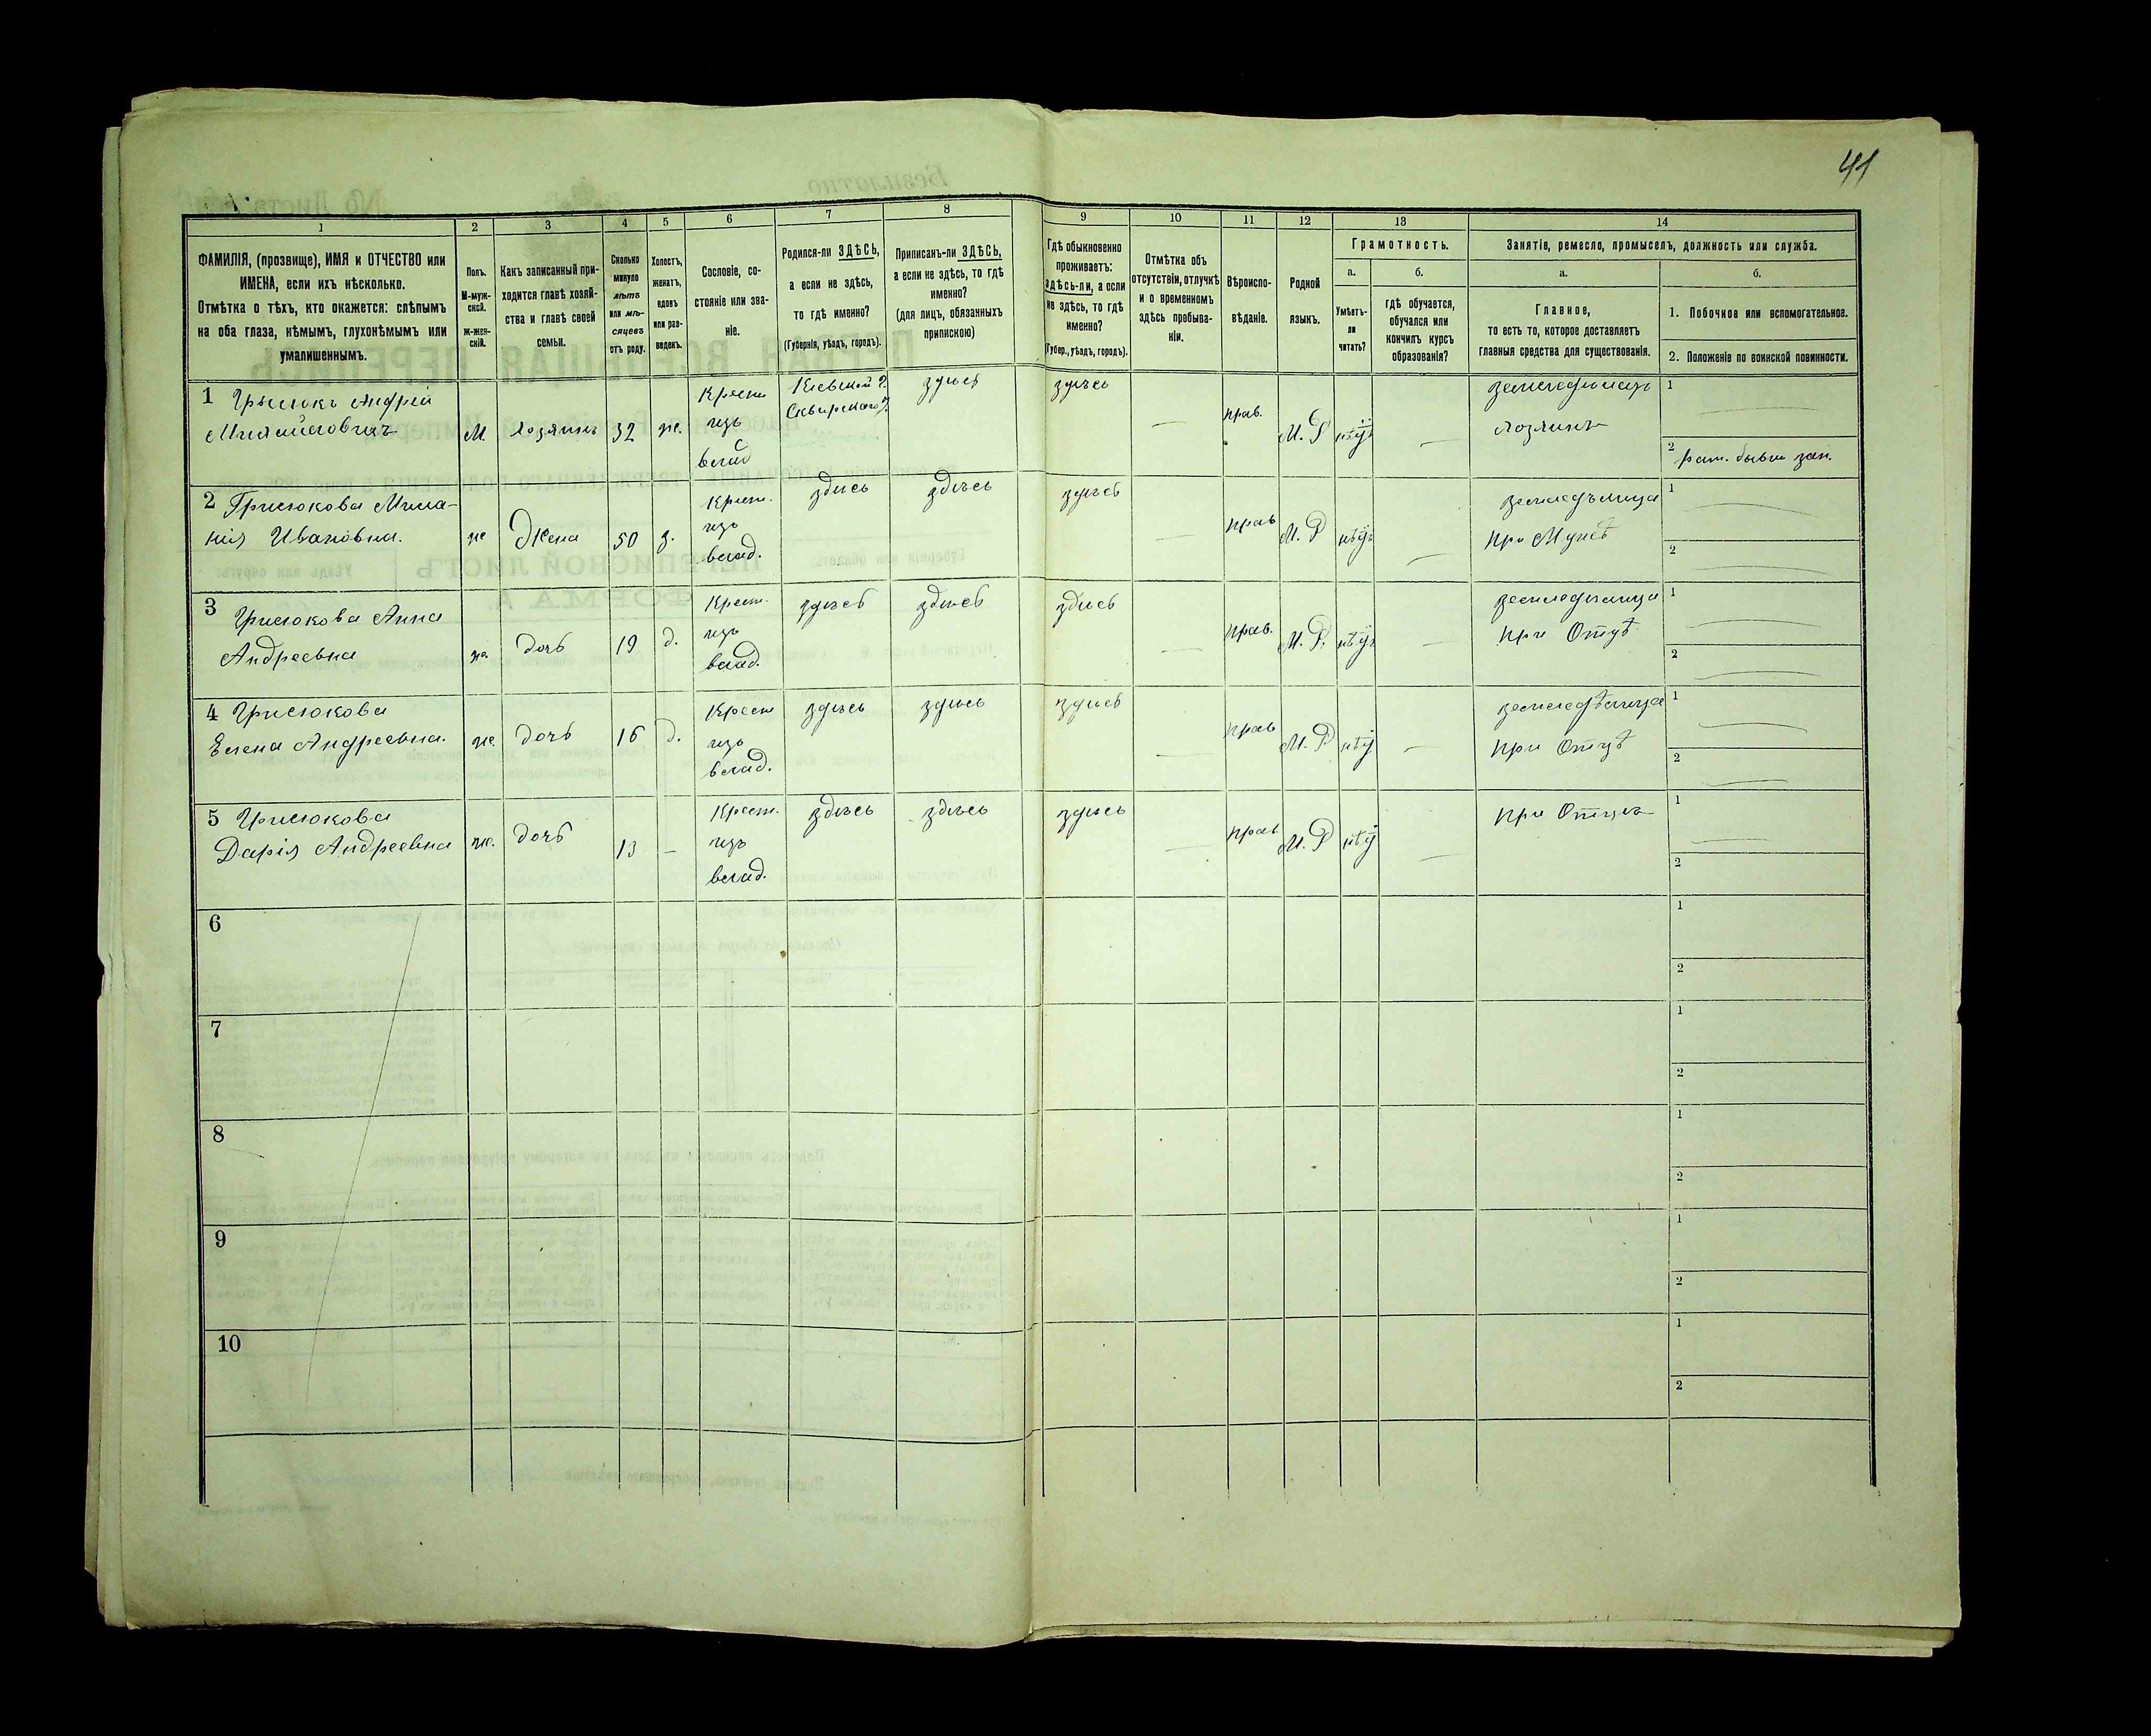 41
1 2 3 4 5 6 7 8 9 10 11 12 13 14
ФАМИЛІЯ, (прозвище), ИМЯ и ОТЧЕСТВО или
ИМЕНА, если ихъ нѣсколько.
Отмѣтка о тѣхъ, кто окажется: слѣпымъ
на оба глаза, нѣмымъ, глухонѣмымъ или
умалишеннымъ.
Полъ.
М-муж-
ской.
ж-жен-
скій.
Какъ записанный при-
ходится главѣ хозяй-
ства и главѣ своей
семьи.
Сколько
минуло
лѣтъ
или мѣ-
сяцевъ
отъ роду.
Холостъ,
женатъ,
вдовъ
или раз-
веденъ.
Сословіе, со-
стояніе или зва-
ніе.
Родился-ли ЗДѢСЬ,
а если не здѣсь,
то гдѣ именно?
(Губернія, уѣздъ, городъ).
Приписанъ-ли ЗДѢСЬ,
а если не здѣсь, то гдѣ
именно?
(для лицъ, обязанныхъ
припискою)
Гдѣ обыкновенно
проживаетъ:
здѣсь-ли, а если
не здѣсь, то гдѣ
именно?
(Губер., уѣздъ, городъ).
Отмѣтка объ
отсутствіи, отлучкѣ
и о временномъ
здѣсь пребыва-
ніи.
Вѣроиспо-
вѣданіе.
Родной
языкъ.
Грамотность.
а.
Умѣетъ-
ли
читать?
б.
гдѣ обучается,
обучался или
кончилъ курсъ
образованія?
Занятіе, ремесло, промыселъ, должность или служба.
а.
Главное,
то есть то, которое доставляетъ
главныя средства для существованія.
б.
1. Побочное или вспомогательное.
2. Положеніе по воинской повинности.
1 Андрей
М. хозяинъ 32 ж.
Крест.
изъ
влад
Кіевской г.
Сквирского у.
здѣсь
здѣсь
—
прав.
М. Р
нѣтъ
—
хозяинъ
1
2
2 Грисюкова
Ивановна.
ж Жена 50 з.
Крест.
изъ
влад.
здѣсь
здѣсь
здѣсь
—
прав
М. Р
нѣтъ
—
земледѣлица
при Мужѣ
1
2
3 Грисюкова Анна
Андреевна
ж. дочь 19 д.
Крест.
изъ
влад.
здѣсь
здѣсь
здѣсь
—
прав.
М. Р.
нѣтъ
—
земледѣлица
при Отцѣ
1
2
4 Грисюкова
Елена Андреевна.
ж. дочь 16 д.
Крест
изъ
влад.
здѣсь
здѣсь
здѣсь
—
прав
М. Р
нѣтъ
—
земледѣлица
при Отцѣ
1
2
5 Грисюкова
Дарія Андреевна
ж. дочь 13 —
Крест.
изъ
влад.
здѣсь
здѣсь
здѣсь
—
прав
М. Р
нѣтъ
—
при Отцѣ
1
2
6
1
2
7
1
2
8
1
2
9
1
2
10
1
2